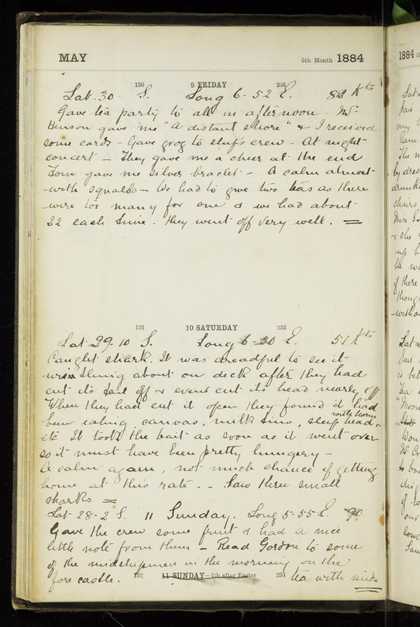 MAY 5th Month 1884
130 9 FRIDAY 236
Lat. 30 S. Long 6-52 E. Kts
Gave tea party to all in afternoon. Mr
Henson gave me "A distant shore" & I received
some cards - Gave grog to ship's crew - At night
concert - They gave me a cheer at the end
Tom gave me silver braclet - A calm almost
with squalls - We had to give two teas as there
were too many for one & we had about
22 each time. They went off very well.
131 10 SATURDAY 235
Lat 29.10 S. Long 6-20 E. 51 kts
Caught shark. It was dreadful to see it
wriething about on deck after they had
cut its tail off & even cut its head nearly off
When they had cut it open they found it had
been eating canvas, milk tins, sheep head,
with horns
etc It took the bait as soon as it went over
so it must have been pretty hungery -
A calm again, not much chance of getting
home at this rate. - Saw three small
sharks
Lat 28-2 S. 11 Sunday. Long 5-55 E. 90.
Gave the crew some fruit & had a nice
little note from them - Read Gordon to some
of the midshipmen in the morning on the
fore castle. 11 SUNDAY - 4th after Easter tea with mids